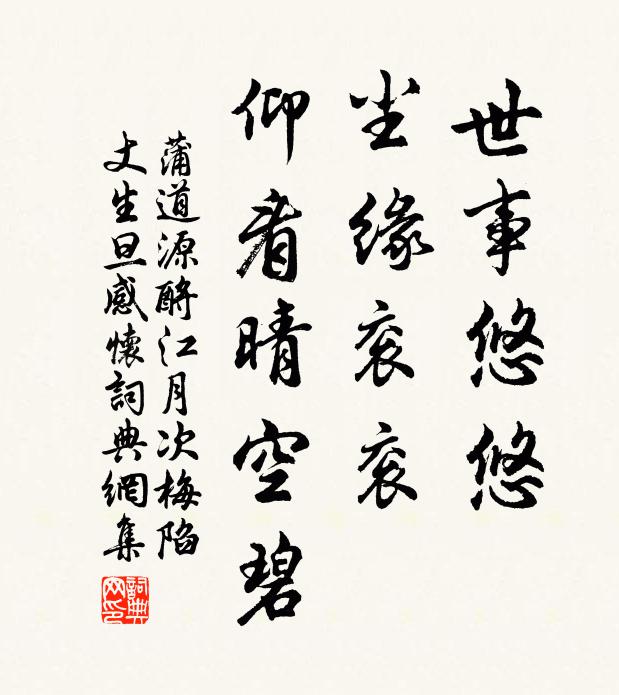 世事悠悠
尘缘衮衮
仰看晴空碧
蒲道源酹江月次梅陷
丈生旦感懷詞典網集
詞典网印